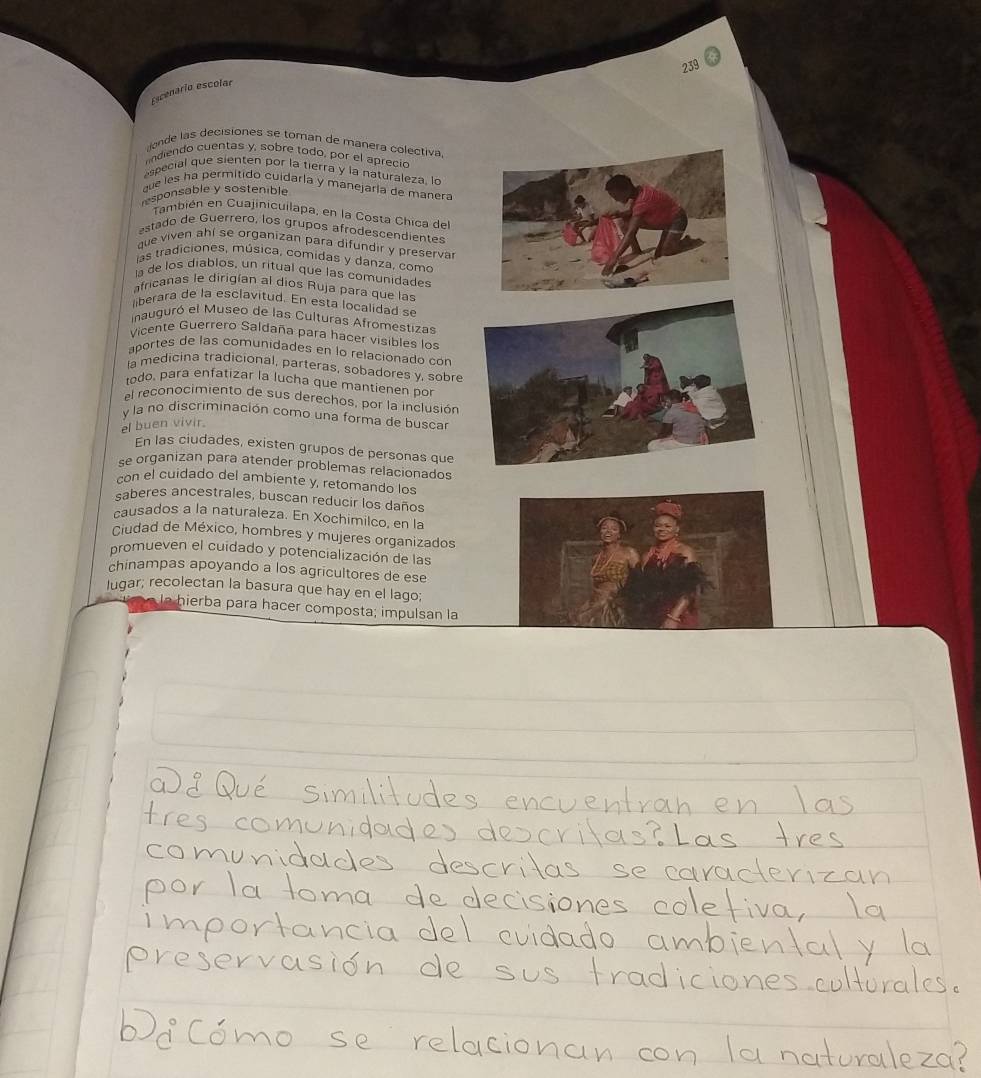 239
Escenario escolar
donde las decisiones se toman de manera colectiva,
rindiendo cuentas y, sobre todo, por el aprecio
especial que sienten por la tierra y la naturaleza, lo
que les ha permitido cuidarla y manejarla de manera
responsable y sostenible.
También en Cuajinicuilapa, en la Costa Chica del
estado de Guerrero, los grupos afrodescendientes
que viven ahí se organizan para difundir y preservar
las tradiciones, música, comidas y danza, como
la de los diablos, un ritual que las comunidades
africanas le dirigían al dios Ruja para que las
liberara de la esclavitud. En esta localidad se
inauguró el Museo de las Culturas Afromestizas
Vicente Guerrero Saldaña para hacer visibles los
aportes de las comunidades en lo relacionado con
la medicina tradicional, parteras, sobadores y, sobre
todo, para enfatizar la lucha que mantienen por
el reconocimiento de sus derechos, por la inclusión
y la no discriminación como una forma de buscar
el buen vivir.
En las ciudades, existen grupos de personas que
se organizan para atender problemas relacionados
con el cuidado del ambiente y, retomando los
saberes ancestrales, buscan reducir los daños
causados a la naturaleza. En Xochimilco, en la
Ciudad de México, hombres y mujeres organizados
promueven el cuidado y potencialización de las
chinampas apoyando a los agricultores de ese
lugar; recolectan la basura que hay en el lago;
la hierba para hacer composta; impulsan la
a) ¿Qué similitudes encuentran en las
tres comunidades descritas? Las tres
comunidades descritas se caracterizan
por la toma de decisiones coletiva, la
importancia del cuidado ambiental y la
preservasión de sus tradiciones culturales.
b) ¿Cómo se relacionan con la naturaleza?